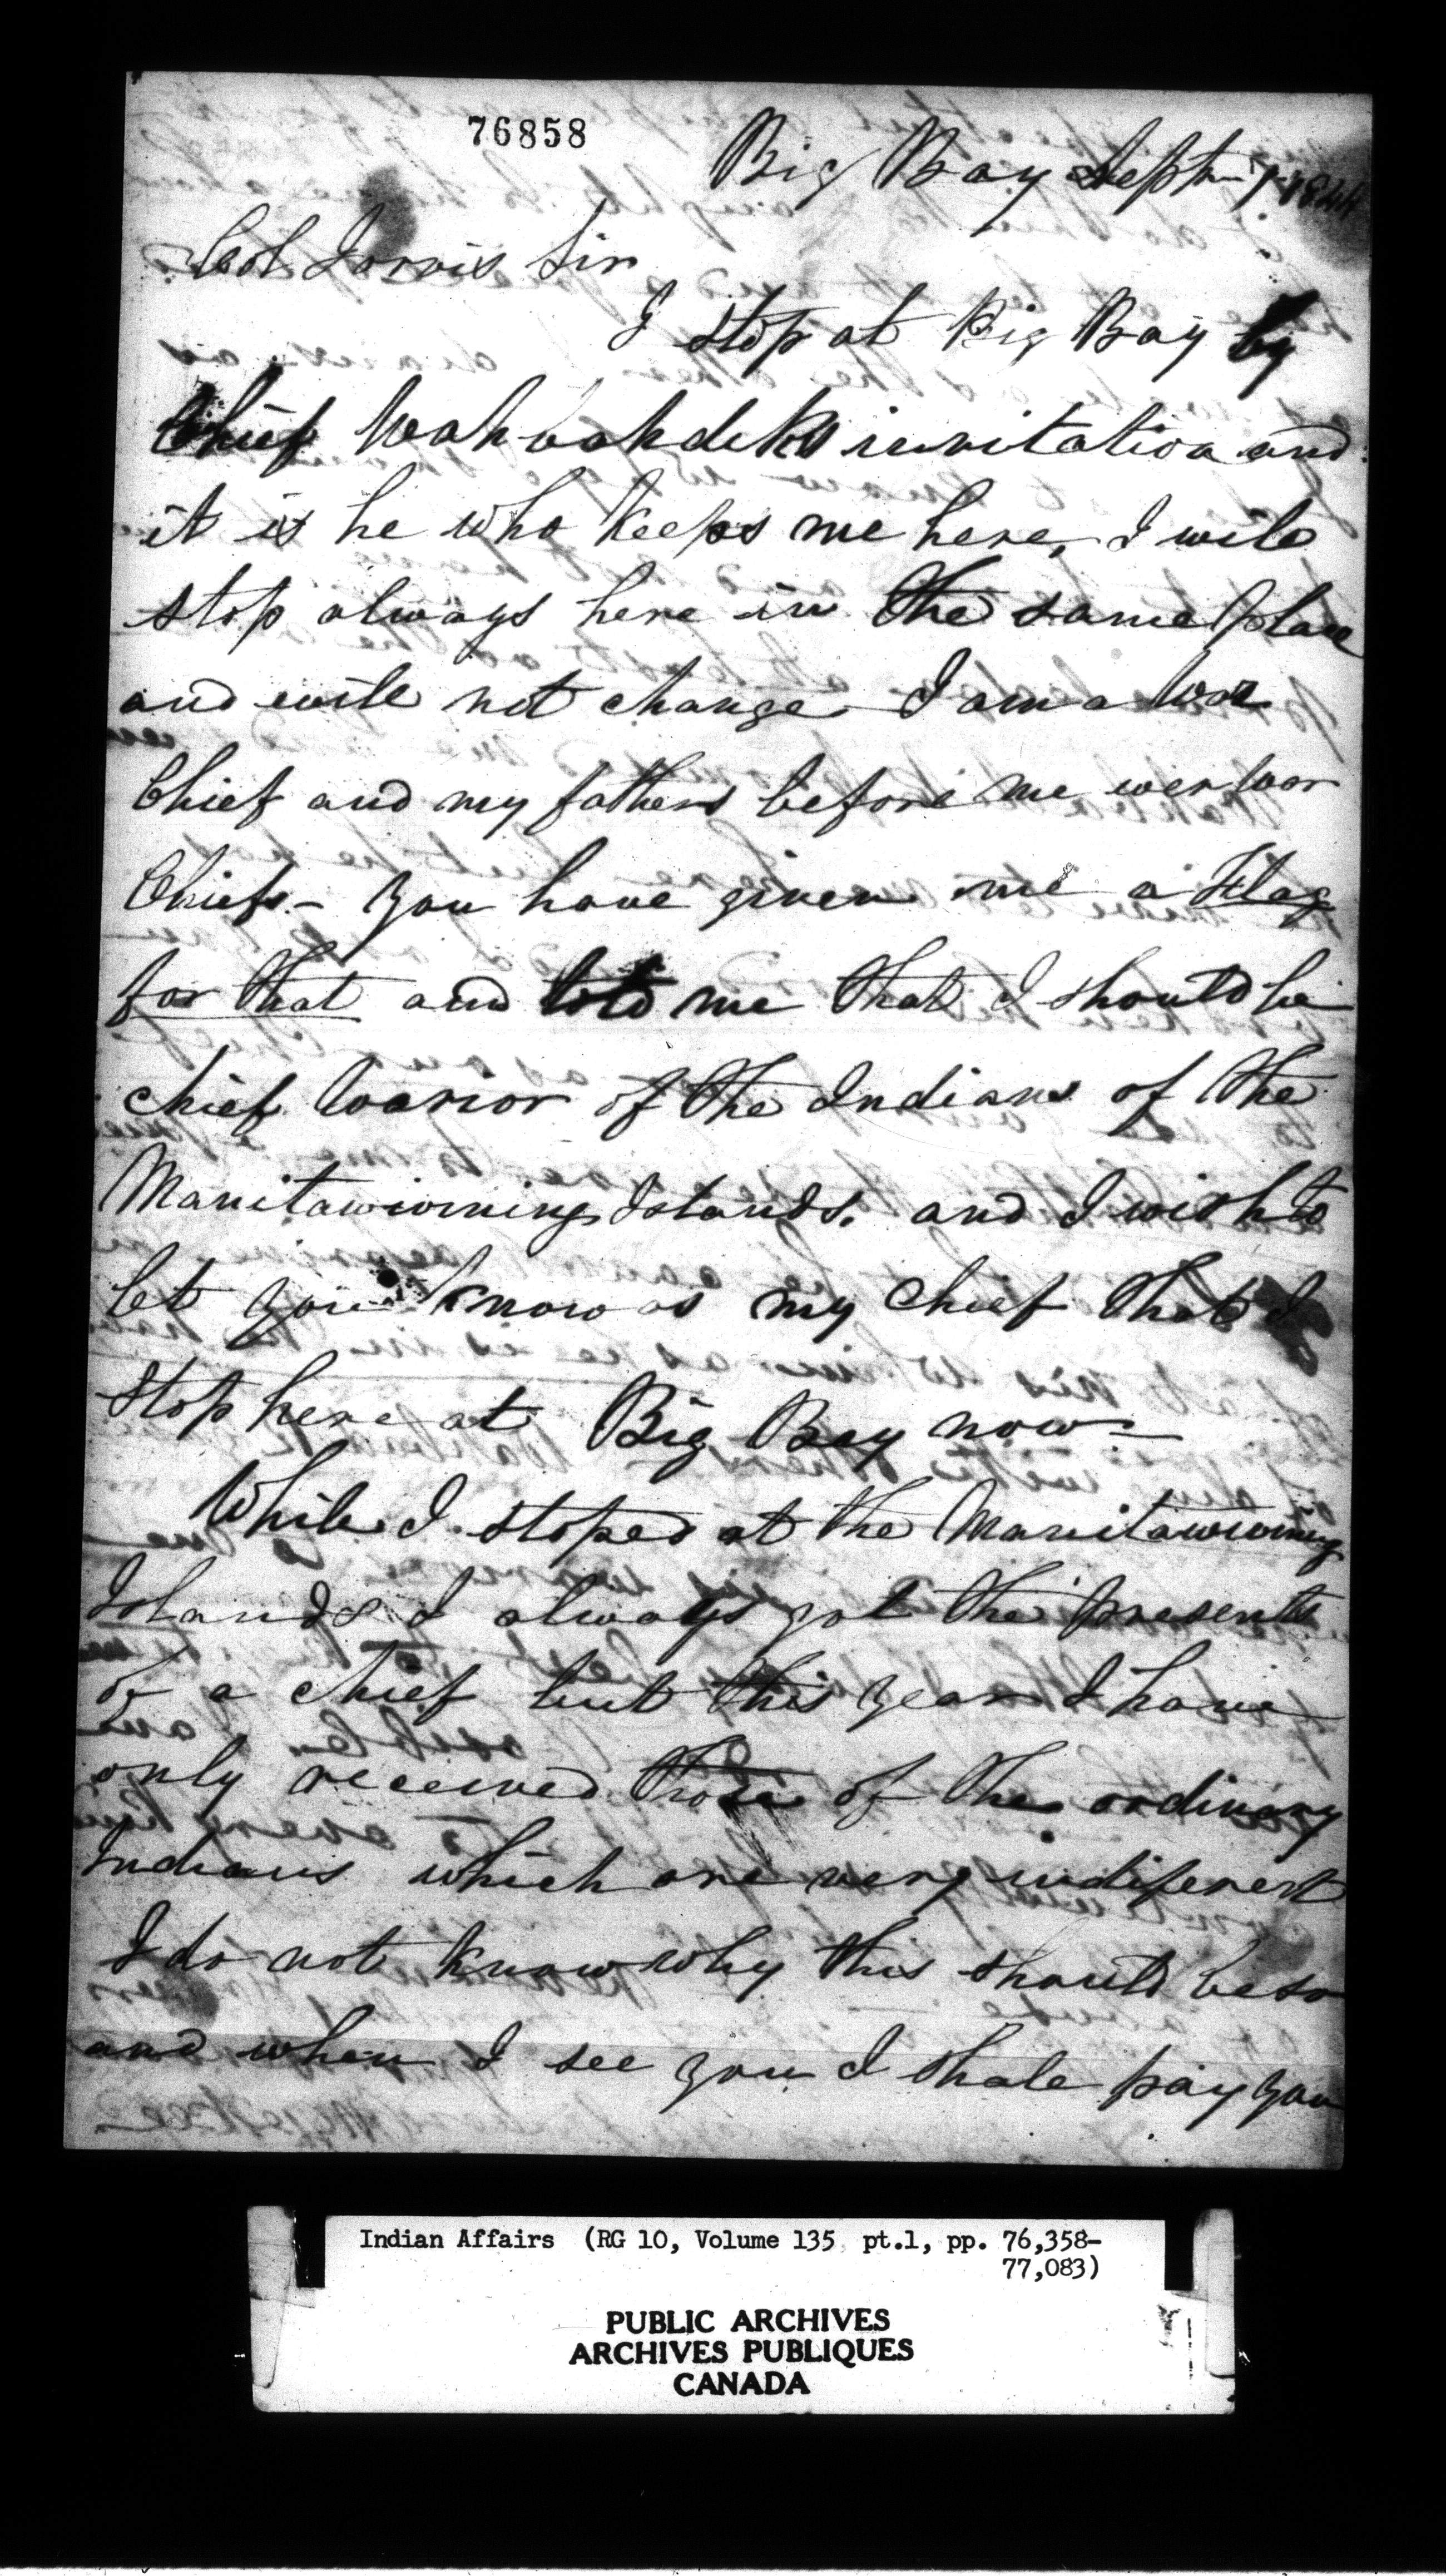 76858
Big Bay Sept. 7 1844
Col Jarvis Sir
I stop at Big Bay by
Chief Wahbahdiks invitation and
it is he who keeps me here, I will
stop always here in the same place
and will not change. I am a War
Chief and my fathers before me wer war
Chiefs - you have given me a Flag
for that and told me that I should be
chief Warior of the Indians of the
Manitawiwning Islands. and I wish to
let you know as my Chief that I
stop here at Big Bay now -
While I stoped at the Manitawiwning
Islands I always got the presents
of a Chief but this year I have
only received those of the ordinary
Indians which are very indiferent
I do not know why this should be so
and when I see you I shale pay you
Indian Affairs (RG 10, Volume 135 pt.1, pp. 76,358-
77,083)
PUBLIC ARCHIVES
ARCHIVES PUBLIQUES
CANADA